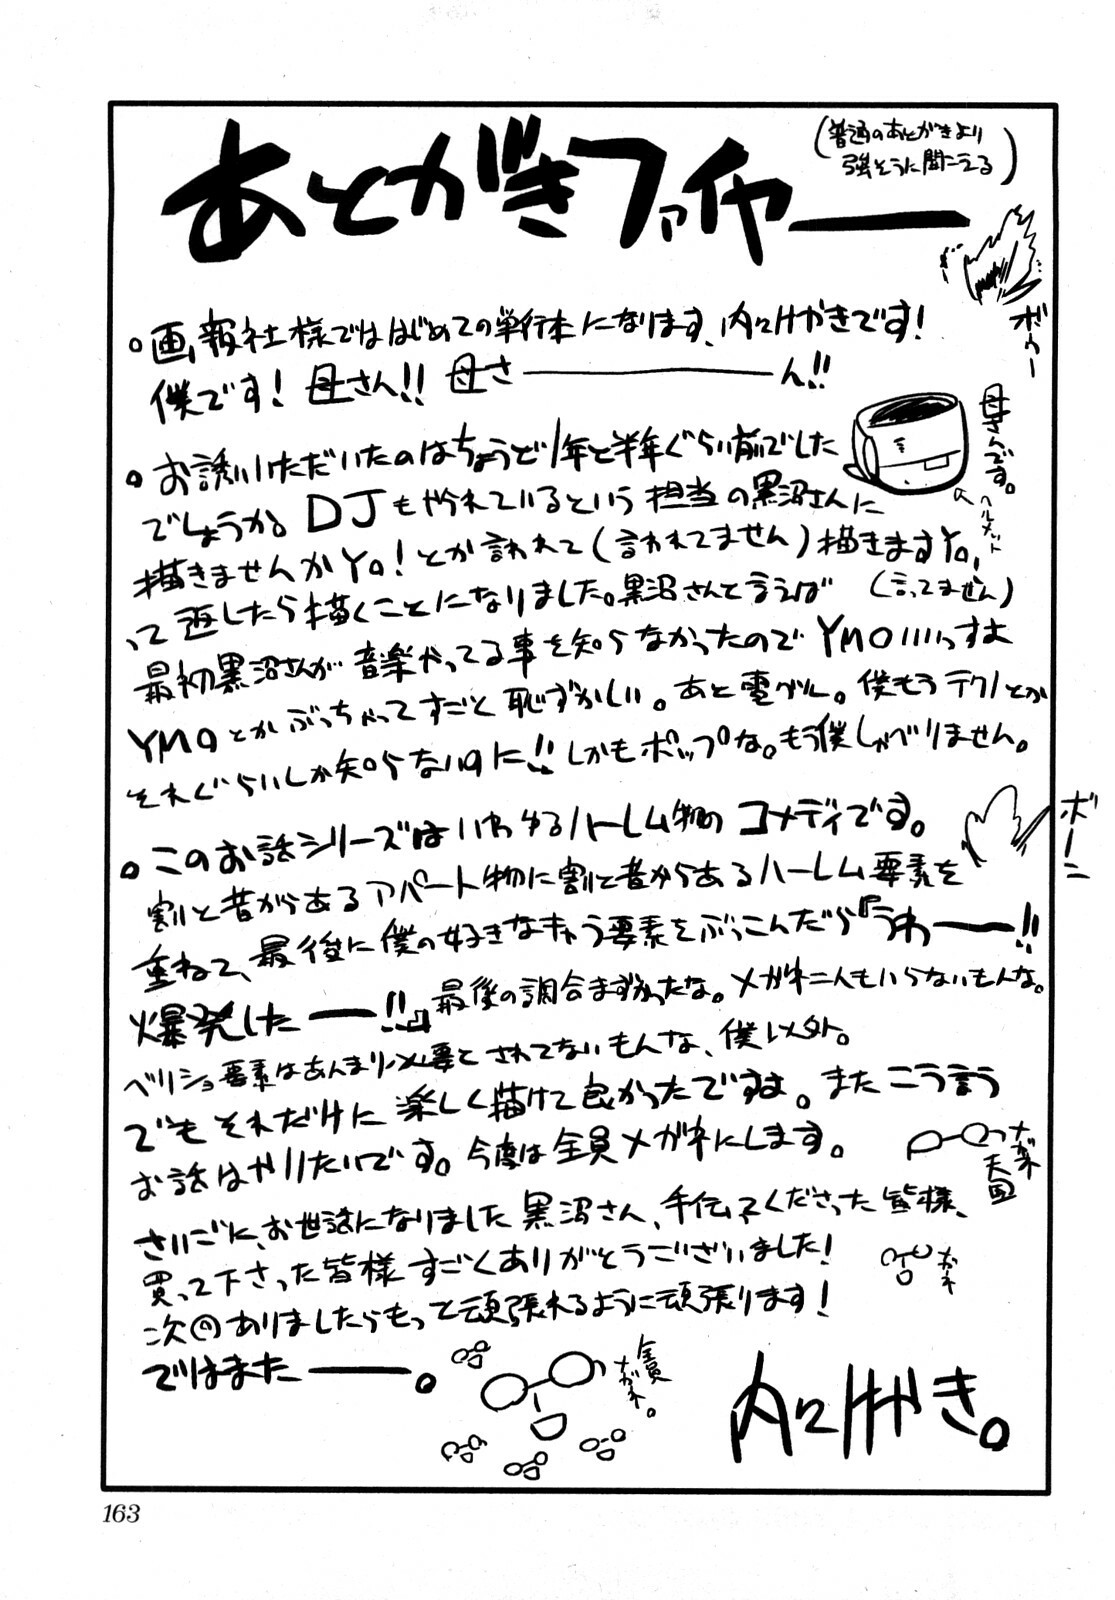 あとがきファイヤー
(普通のあとがきより
強そうに聞こえる)
ボゥー
○画報社様でははじめての単行本になります、内々けやきです!
僕です!母さん!!母さ――――ん!!
母さんです。
ヘルメット
○お誘いいただいたのはちょうど1年と半年ぐらい前でした
でしょうか。DJもやられているという担当の黒沼さんに
描きませんかYo!とか言われて(言われてません)描きますYo,
って返したら描くことになりました。黒沼さんと言えば
(言ってません)
最初黒沼さんが音楽やってる事を知らなかったのでYMOいいっすよ
YMOとかぶっちゃってすごく恥ずかしい。あと電グル。僕もうテクノとか
それぐらいしか知らないのに!!しかもポップな。もう僕しゃべりません。
○このお話シリーズはいわゆるハーレム物のコメディです。
ボーン
割と昔からあるアパート物に割と昔からあるハーレム要素を
重ねて、最後に僕の好きなキャラ要素をぶっこんだら『うわーー!!
爆発したーー!!』最後の調合まずかったな。メガネ二人もいらないもんな。
ベリショ要素はあんまり必要とされてないもんな、僕以外。
でもそれだけに楽しく描けて良かったですよ。またこう言う
お話はやりたいです。今度は全員メガネにします。
メガネ
天国
さいごに、お世話になりました黒沼さん、手伝てくださった皆様、
買って下さった皆様すごくありがとうございました!
次回ありましたらもって頑張れるように頑張ります!
ではまたーー。
全員
メガネ。
内々けやき。
163